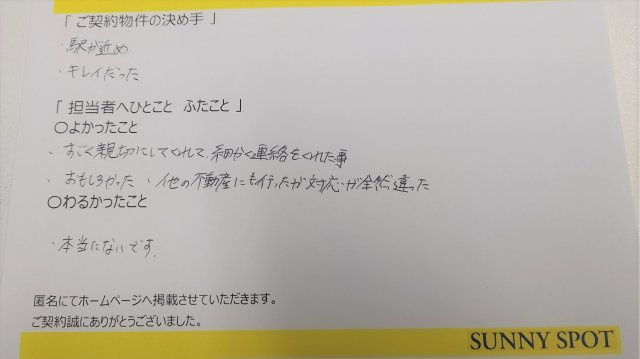 「 ご契約物件の決め手 」
・駅が近め
・キレイだった
「 担当者へひとこと ふたこと 」
〇よかったこと
・すごく親切にしてくれて、細かく連絡をくれた事
・おもしろかった ・他の不動産にも行ったが対応が全然違った
〇わるかったこと
・本当にないです。
匿名にてホームページへ掲載させていただきます。
ご契約誠にありがとうございました。
SUNNY SPOT